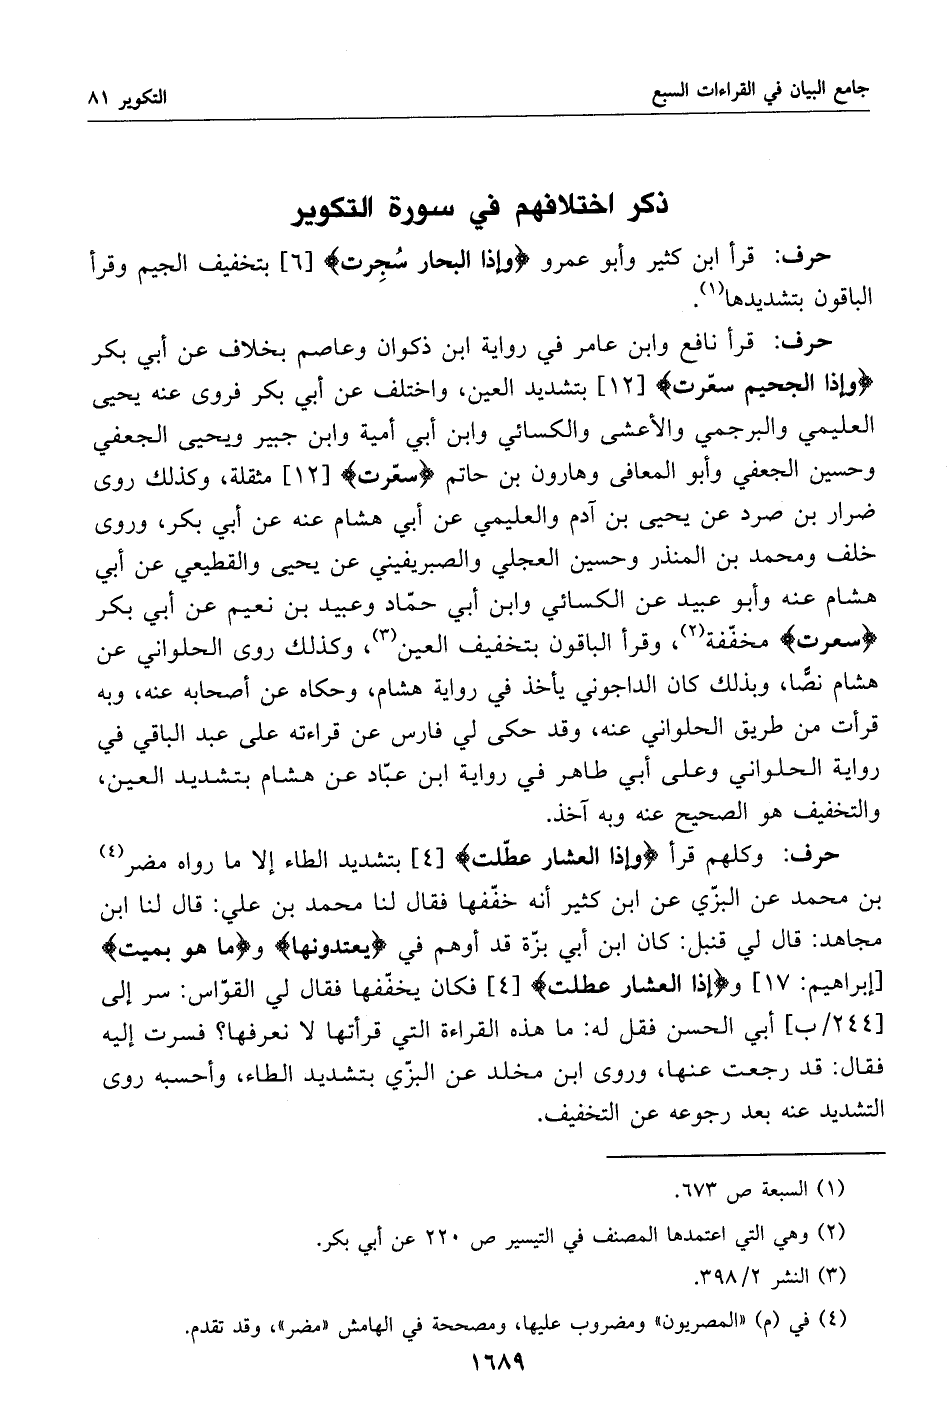 جامع البيان في القراءات السبع
التكوير ٨١
ذكر اختلافهم في سورة التكوير
حرف: قرأ ابن كثير وأبو عمرو ﴿وإذا البحار سُجِرت﴾ [٦] بتخفيف الجيم وقرأ
الباقون بتشديدها(١).
حرف: قرأ نافع وابن عامر في رواية ابن ذكوان وعاصم بخلاف عن أبي بكر
﴿وإذا الجحيم سعّرت﴾ [١٢] بتشديد العين، واختلف عن أبي بكر فروى عنه يحيى
العليمي والبرجمي والأعشى والكسائي وابن أبي أمية وابن جبير ويحيى الجعفي
وحسين الجعفي وأبو المعافى وهارون بن حاتم ﴿سعّرت﴾ [١٢] مثقلة، وكذلك روى
ضرار بن صرد عن يحيى بن آدم والعليمي عن أبي هشام عنه عن أبي بكر، وروى
خلف ومحمد بن المنذر وحسين العجلي والصبريفيني عن يحيى والقطيعي عن أبي
هشام عنه وأبو عبيد عن الكسائي وابن أبي حمّاد وعبيد بن نعيم عن أبي بكر
﴿سعرت﴾ مخفّفة(٢)، وقرأ الباقون بتخفيف العين(٣)، وكذلك روى الحلواني عن
هشام نصًّا، وبذلك كان الداجوني يأخذ في رواية هشام، وحكاه عن أصحابه عنه، وبه
قرأت من طريق الحلواني عنه، وقد حكى لي فارس عن قراءته على عبد الباقي في
رواية الحلواني وعلى أبي طاهر في رواية ابن عبّاد عن هشام بتشديد العين،
والتخفيف هو الصحيح عنه وبه آخذ.
حرف: وكلهم قرأ ﴿وإذا العشار عطّلت﴾ [٤] بتشديد الطاء إلا ما رواه مضر(٤)
بن محمد عن البزّي عن ابن كثير أنه خفّفها فقال لنا محمد بن علي: قال لنا ابن
مجاهد: قال لي قنبل: كان ابن أبي بزّة قد أوهم في ﴿يعتدونها﴾ و﴿ما هو بميت﴾
[إبراهيم: ١٧] و﴿إذا العشار عطلت﴾ [٤] فكان يخفّفها فقال لي القوّاس: سر إلى
[٢٤٤/ب] أبي الحسن فقل له: ما هذه القراءة التي قرأتها لا نعرفها؟ فسرت إليه
فقال: قد رجعت عنها، وروى ابن مخلد عن البزّي بتشديد الطاء، وأحسبه روى
التشديد عنه بعد رجوعه عن التخفيف.
(١) السبعة ص ٦٧٣.
(٢) وهي التي اعتمدها المصنف في التيسير ص ٢٢٠ عن أبي بكر.
(٣) النشر ٣٩٨/٢.
(٤) في (م) «المصريون» ومضروب عليها، ومصححة في الهامش «مضر»، وقد تقدم.
١٦٨٩